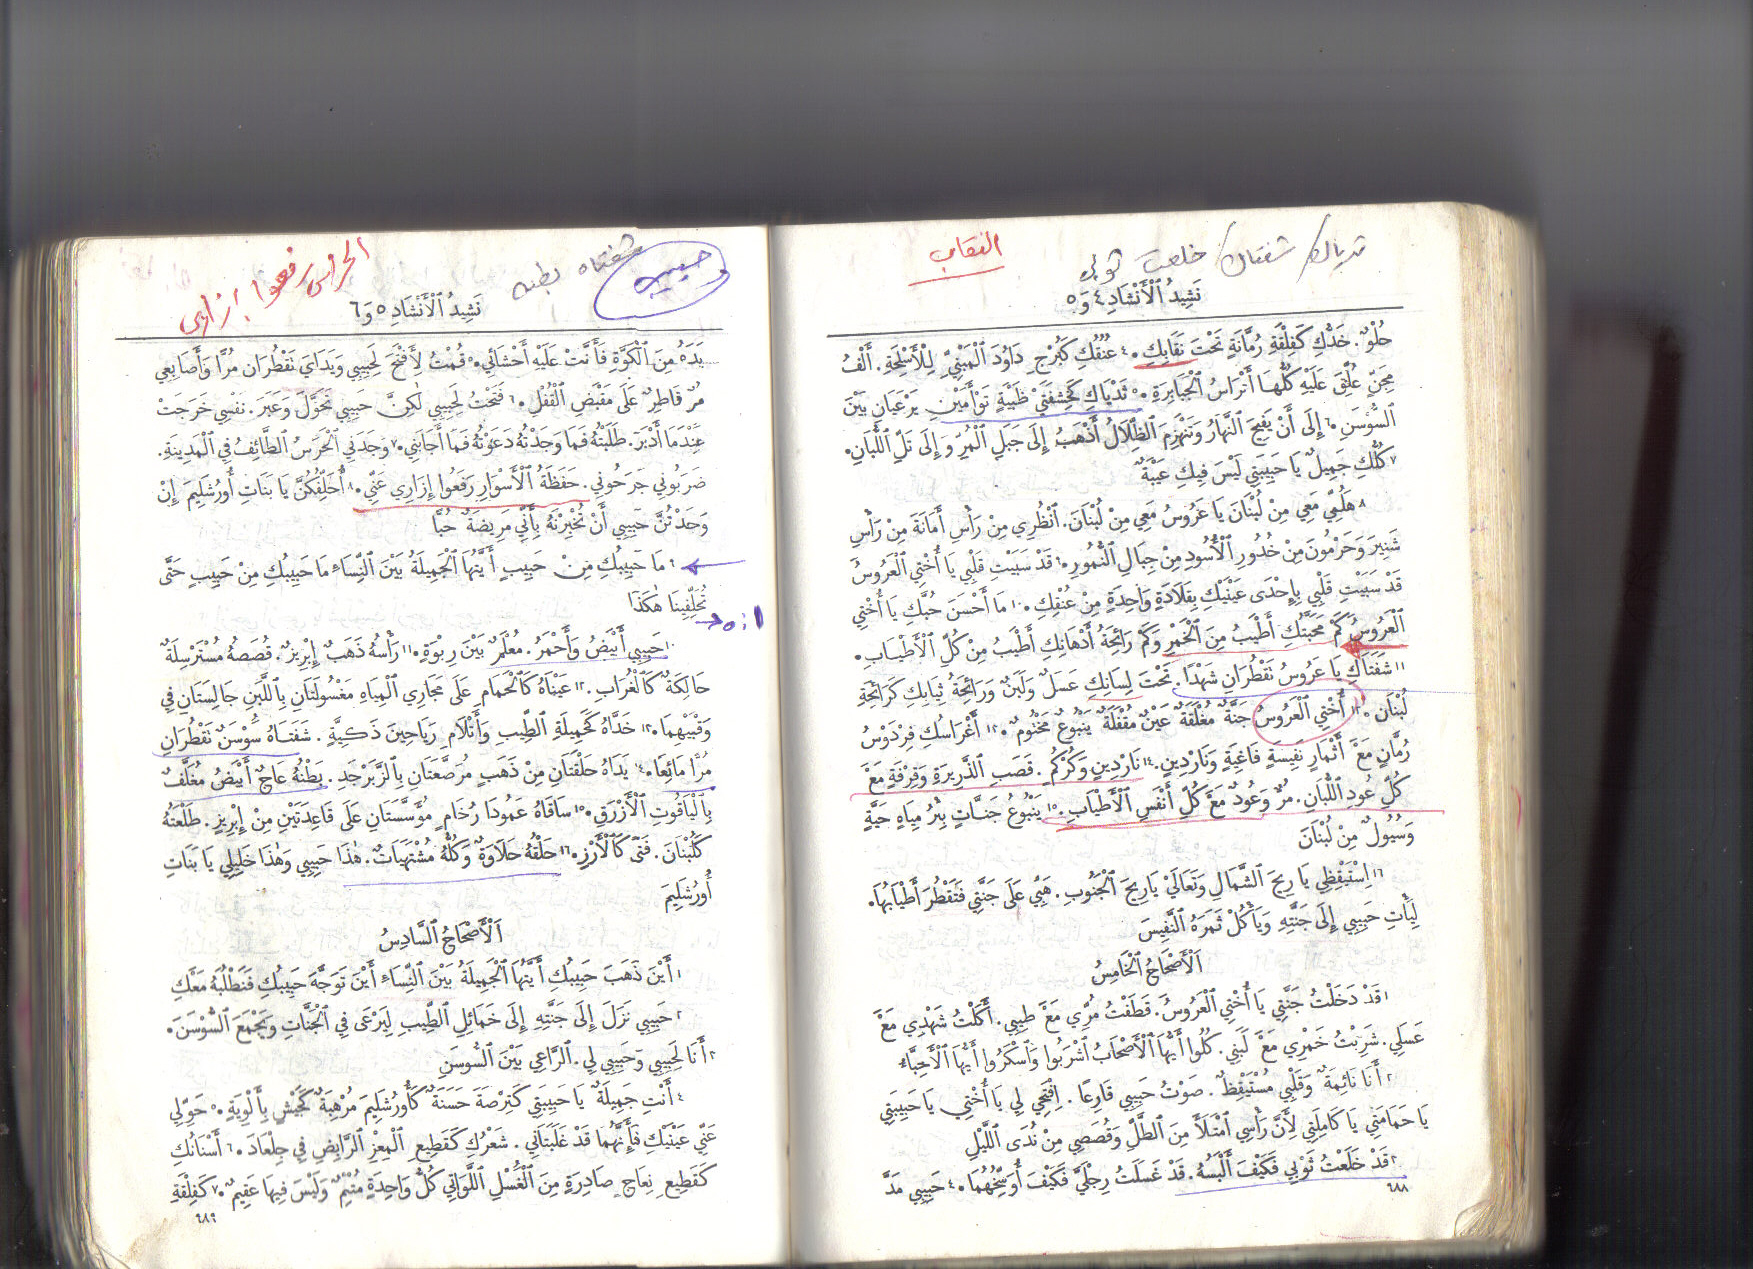 ثدياك/ شفتاك/ خلعت ثوبي
النقاب
نَشِيدُ ٱلْأَنْشَادِ ٤ وَ ٥
حُلْوٌ. خَدُّكِ كَفِلْقَةِ رُمَّانَةٍ تَحْتَ نَقَابِكِ. ٤ عُنُقُكِ كَبُرْجِ دَاوُدَ ٱلْمَبْنِيِّ لِلْأَسْلِحَةِ. أَلْفُ
مِجَنٍّ عُلِّقَ عَلَيْهِ كُلُّهَا أَتْرَاسُ ٱلْجَبَابِرَةِ. ٥ ثَدْيَاكِ كَخِشْفَتَيْ ظَبْيَةٍ تَوْأَمَيْنِ يَرْعَيَانِ بَيْنَ
ٱلسَّوْسَنِ. ٦ إِلَى أَنْ يَفِيحَ ٱلنَّهَارُ وَتَنْهَزِمَ ٱلظِّلَالُ أَذْهَبُ إِلَى جَبَلِ ٱلْمُرِّ وَإِلَى تَلِّ ٱللُّبَانِ.
٧ كُلُّكِ جَمِيلٌ يَا حَبِيبَتِي لَيْسَ فِيكِ عَيْبَةٌ
٨ هَلُمِّي مَعِي مِنْ لُبْنَانَ يَا عَرُوسُ مَعِي مِنْ لُبْنَانَ. ٱنْظُرِي مِنْ رَأْسِ أَمَانَةَ مِنْ رَأْسِ
شَنِيرَ وَحَرْمُونَ مِنْ خُدُورِ ٱلْأُسُودِ مِنْ جِبَالِ ٱلنُّمُورِ. ٩ قَدْ سَبَيْتِ قَلْبِي يَا أُخْتِي ٱلْعَرُوسُ
قَدْ سَبَيْتِ قَلْبِي بِإِحْدَى عَيْنَيْكِ بِقَلَادَةٍ وَاحِدَةٍ مِنْ عُنُقِكِ. ١٠ مَا أَحْسَنَ حُبَّكِ يَا أُخْتِي
ٱلْعَرُوسُ كَمْ مَحَبَّتُكِ أَطْيَبُ مِنَ ٱلْخَمْرِ وَكَمْ رَائِحَةُ أَدْهَانِكِ أَطْيَبُ مِنْ كُلِّ ٱلْأَطْيَابِ.
١١ شَفَتَاكِ يَا عَرُوسُ تَقْطُرَانِ شَهْدًا. تَحْتَ لِسَانِكِ عَسَلٌ وَلَبَنٌ وَرَائِحَةُ ثِيَابِكِ كَرَائِحَةِ
لُبْنَانَ. ١٢ أُخْتِي ٱلْعَرُوسُ جَنَّةٌ مُغْلَقَةٌ عَيْنٌ مُقْفَلَةٌ يَنْبُوعٌ مَخْتُومٌ. ١٣ أَغْرَاسُكِ فِرْدَوْسُ
رُمَّانٍ مَعَ أَثْمَارٍ نَفِيسَةٍ فَاغِيَةٍ وَنَارِدِينٍ. ١٤ نَارِدِينٍ وَكُرْكُمٍ. قَصَبِ ٱلذَّرِيرَةِ وَقِرْفَةٍ مَعَ
كُلِّ عُودِ ٱللُّبَانِ. مُرٌّ وَعُودٌ مَعَ كُلِّ أَنْفَسِ ٱلْأَطْيَابِ. ١٥ يَنْبُوعُ جَنَّاتٍ بِئْرُ مِيَاهٍ حَيَّةٍ
وَسُيُولٌ مِنْ لُبْنَانَ
١٦ اِسْتَيْقِظِي يَا رِيحَ ٱلشَّمَالِ وَتَعَالَيْ يَارِيحَ ٱلْجَنُوبِ. هَبِّي عَلَى جَنَّتِي فَتَقْطُرَ أَطْيَابُهَا.
لِيَأْتِ حَبِيبِي إِلَى جَنَّتِهِ وَيَأْكُلْ ثَمَرَهُ ٱلنَّفِيسَ
اَلْأَصْحَاحُ ٱلْخَامِسُ
١ قَدْ دَخَلْتُ جَنَّتِي يَا أُخْتِي ٱلْعَرُوسُ. قَطَفْتُ مُرِّي مَعَ طِيبِي. أَكَلْتُ شَهْدِي مَعَ
عَسَلِي. شَرِبْتُ خَمْرِي مَعَ لَبَنِي. كُلُوا أَيُّهَا ٱلْأَصْحَابُ ٱشْرَبُوا وَٱسْكَرُوا أَيُّهَا ٱلْأَحِبَّاءُ
٢ أَنَا نَائِمَةٌ وَقَلْبِي مُسْتَيْقِظٌ. صَوْتُ حَبِيبِي قَارِعًا. اِفْتَحِي لِي يَا أُخْتِي يَا حَبِيبَتِي
يَا حَمَامَتِي يَا كَامِلَتِي لِأَنَّ رَأْسِي ٱمْتَلَأَ مِنَ ٱلطَّلِّ وَقُصَصِي مِنْ نُدَى ٱللَّيْلِ
٣ قَدْ خَلَعْتُ ثَوْبِي فَكَيْفَ أَلْبَسُهُ. قَدْ غَسَلْتُ رِجْلَيَّ فَكَيْفَ أُوَسِّخُهُمَا. ٤ حَبِيبِي مَدَّ
٦٨٨
حبيبي
شفتاه بطنه
الحراس رفعوا إزاري
نَشِيدُ ٱلْأَنْشَادِ ٥ وَ ٦
يَدَهُ مِنَ ٱلْكَوَّةِ فَأَنَّتْ عَلَيْهِ أَحْشَائِي. ٥ قُمْتُ لِأَفْتَحَ لِحَبِيبِي وَيَدَايَ تَقْطُرَانِ مُرًّا وَأَصَابِعِي
مُرٌّ قَاطِرٌ عَلَى مَقْبَضِ ٱلْقُفْلِ. ٦ فَتَحْتُ لِحَبِيبِي لٰكِنَّ حَبِيبِي تَحَوَّلَ وَعَبَرَ. نَفْسِي خَرَجَتْ
عِنْدَمَا أَدْبَرَ. طَلَبْتُهُ فَمَا وَجَدْتُهُ دَعَوْتُهُ فَمَا أَجَابَنِي. ٧ وَجَدَنِي ٱلْحَرَسُ ٱلطَّائِفُ فِي ٱلْمَدِينَةِ.
ضَرَبُونِي جَرَحُونِي. حَفَظَةُ ٱلْأَسْوَارِ رَفَعُوا إِزَارِي عَنِّي. ٨ أُحَلِّفُكُنَّ يَا بَنَاتِ أُورُشَلِيمَ إِنْ
وَجَدْتُنَّ حَبِيبِي أَنْ تُخْبِرْنَهُ بِأَنِّي مَرِيضَةٌ حُبًّا
٩ مَا حَبِيبُكِ مِنْ حَبِيبٍ أَيَّتُهَا ٱلْجَمِيلَةُ بَيْنَ ٱلنِّسَاءِ مَا حَبِيبُكِ مِنْ حَبِيبٍ حَتَّى
تُحَلِّفِينَا هٰكَذَا
١٠ حَبِيبِي أَبْيَضُ وَأَحْمَرُ. مُعْلَمٌ بَيْنَ رِبْوَةٍ. ١١ رَأْسُهُ ذَهَبٌ إِبْرِيزٌ. قُصَصُهُ مُسْتَرْسِلَةٌ
حَالِكَةٌ كَٱلْغُرَابِ. ١٢ عَيْنَاهُ كَٱلْحَمَامِ عَلَى مَجَارِي ٱلْمِيَاهِ مَغْسُولَتَانِ بِٱللَّبَنِ جَالِسَتَانِ فِي
وَقْبَيْهِمَا. ١٣ خَدَّاهُ كَخَمِيلَةِ ٱلطِّيبِ وَأَتْلَامِ رَيَاحِينَ ذَكِيَّةٍ. شَفَتَاهُ سُوْسَنٌ تَقْطُرَانِ
مُرًّا مَائِعًا. ١٤ يَدَاهُ حَلْقَتَانِ مِنْ ذَهَبٍ مُرَصَّعَتَانِ بِٱلزَّبَرْجَدِ. بَطْنُهُ عَاجٌ أَبْيَضُ مُغَلَّفٌ
بِٱلْيَاقُوتِ ٱلْأَزْرَقِ. ١٥ سَاقَاهُ عَمُودَا رُخَامٍ مُؤَسَّسَتَانِ عَلَى قَاعِدَتَيْنِ مِنْ إِبْرِيزٍ. طَلْعَتُهُ
كَلُبْنَانَ. فَتًى كَٱلْأَرْزِ. ١٦ حَلْقُهُ حَلَاوَةٌ وَكُلُّهُ مُشْتَهَيَاتٌ. هٰذَا حَبِيبِي وَهٰذَا خَلِيلِي يَا بَنَاتِ
أُورُشَلِيمَ
اَلْأَصْحَاحُ ٱلسَّادِسُ
١ أَيْنَ ذَهَبَ حَبِيبُكِ أَيَّتُهَا ٱلْجَمِيلَةُ بَيْنَ ٱلنِّسَاءِ أَيْنَ تَوَجَّهَ حَبِيبُكِ فَنَطْلُبَهُ مَعَكِ
٢ حَبِيبِي نَزَلَ إِلَى جَنَّتِهِ إِلَى خَمَائِلِ ٱلطِّيبِ لِيَرْعَى فِي ٱلْجَنَّاتِ وَيَجْمَعَ ٱلسُّوْسَنَ.
٣ أَنَا لِحَبِيبِي وَحَبِيبِي لِي. ٱلرَّاعِي بَيْنَ ٱلسُّوْسَنِ
٤ أَنْتِ جَمِيلَةٌ يَا حَبِيبَتِي كَتِرْصَةَ حَسَنَةٌ كَأُورُشَلِيمَ مُرْهِبَةٌ كَجَيْشٍ بِأَلْوِيَةٍ. ٥ حَوِّلِي
عَنِّي عَيْنَيْكِ فَإِنَّهُمَا قَدْ غَلَبَتَانِي. شَعْرُكِ كَقَطِيعِ ٱلْمِعْزِ ٱلرَّابِضِ فِي جِلْعَادَ. ٦ أَسْنَانُكِ
كَقَطِيعِ نِعَاجٍ صَادِرَةٍ مِنَ ٱلْغَسْلِ ٱللَّوَاتِي كُلُّ وَاحِدَةٍ مُتْئِمٌ وَلَيْسَ فِيهَا عَقِيمٌ. ٧ كَفِلْقَةِ
٦٨٩